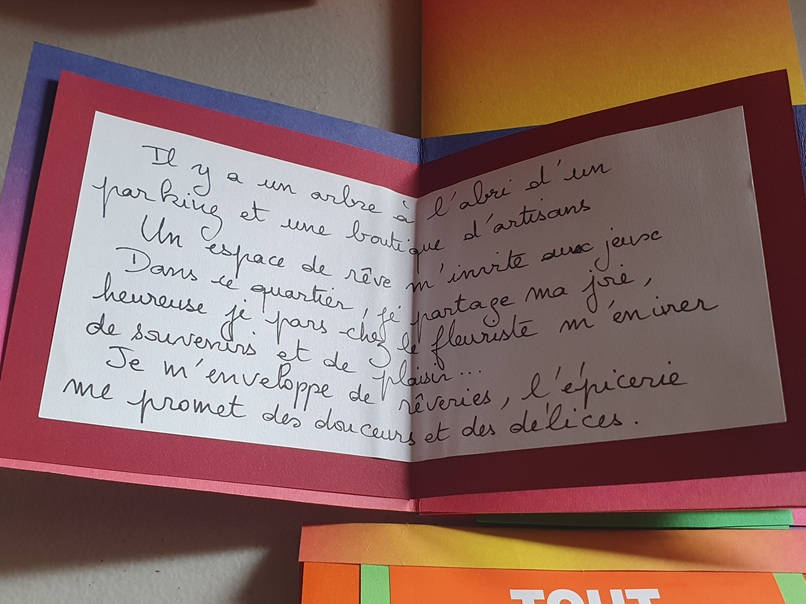 Il y a un arbre à l'abri d'un
parking et une boutique d'artisans
Un espace de rêve m'invite aux jeux
Dans ce quartier, je partage ma joie,
heureuse je pars chez le fleuriste m'enivrer
de souvenirs et de plaisir...
Je m'enveloppe de rêveries, l'épicerie
me promet des douceurs et des délices.
TOUT